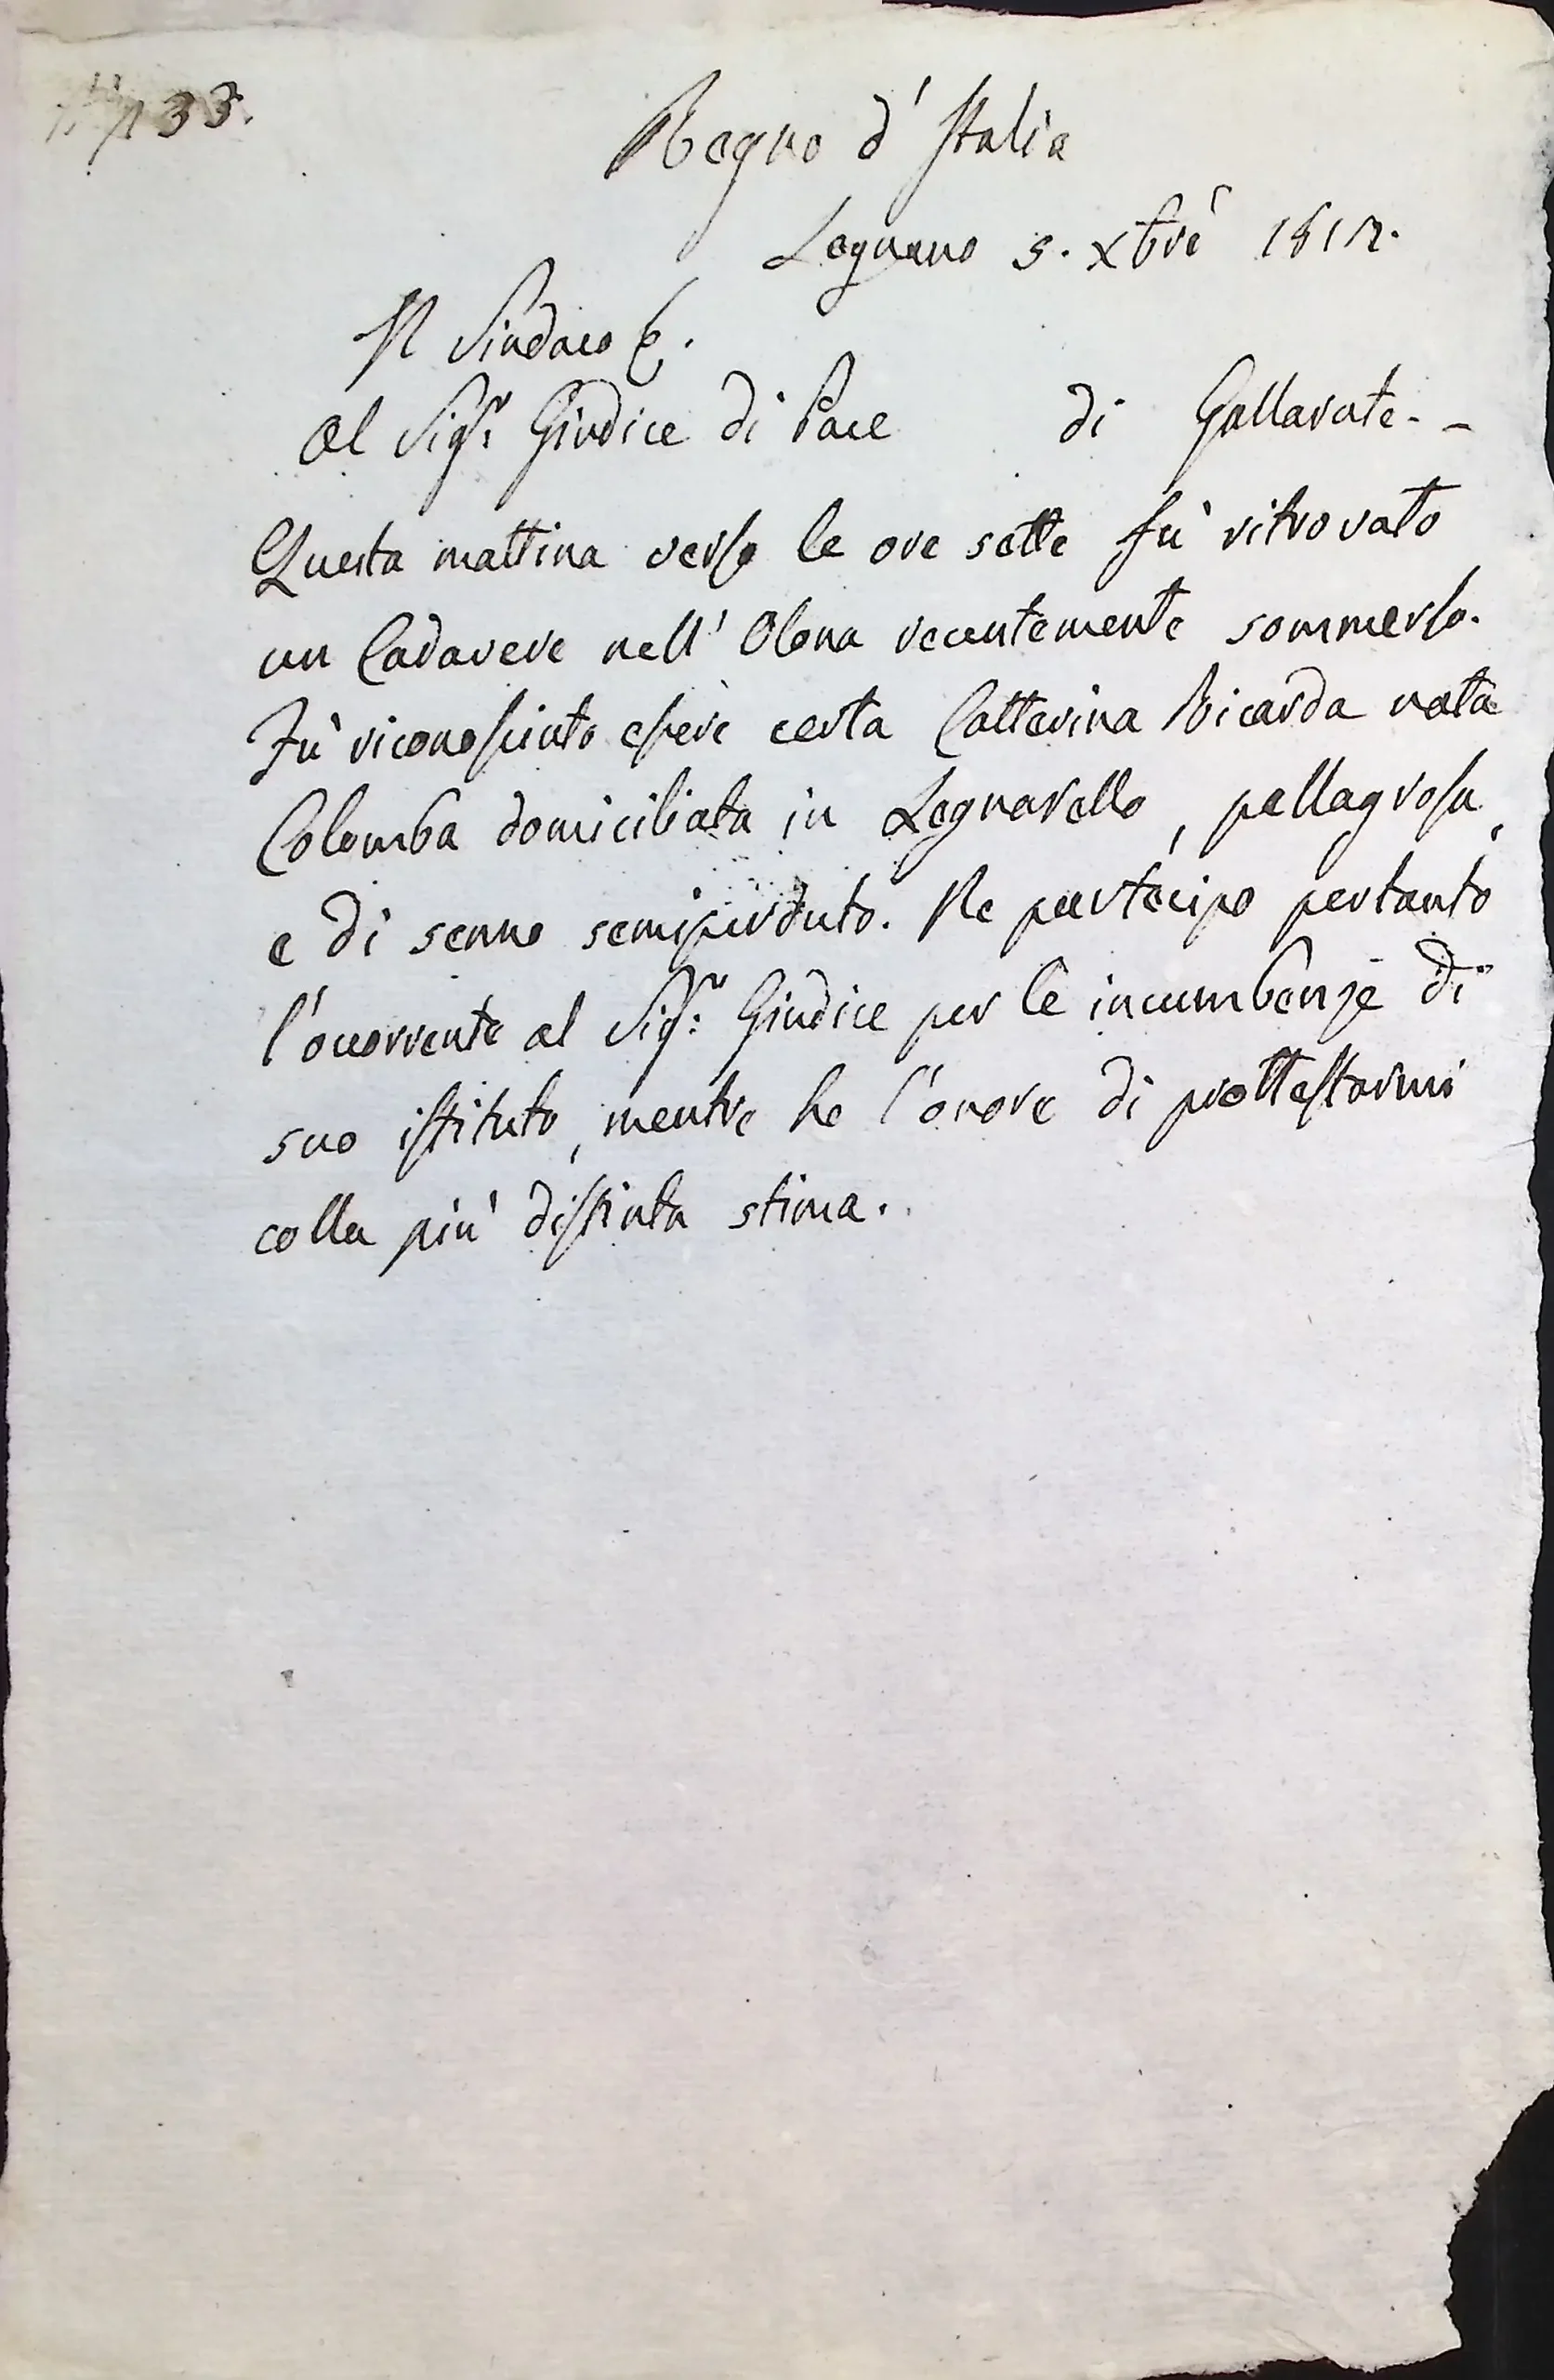 Regno d' Italia
Legnano 5. Xbrè 1812.
Il Sindaco
Al Sigr: Giudice di Pace di Gallarate--
Questa mattina verso le ore sette fù ritrovato
un Cadavere nell' Olona recentemente sommerso.
Fù riconosciuto essere certa Catterina Ricarda nata
Colomba domiciliata in Legnarello, pellagrosa,
e di senno semiperduto. Ne partecipo pertanto
l'occorrente al Sigr: Giudice per le incumbenze di
suo istituto, mentre ho l'onore di prottestarmi
colla più distinta stima.